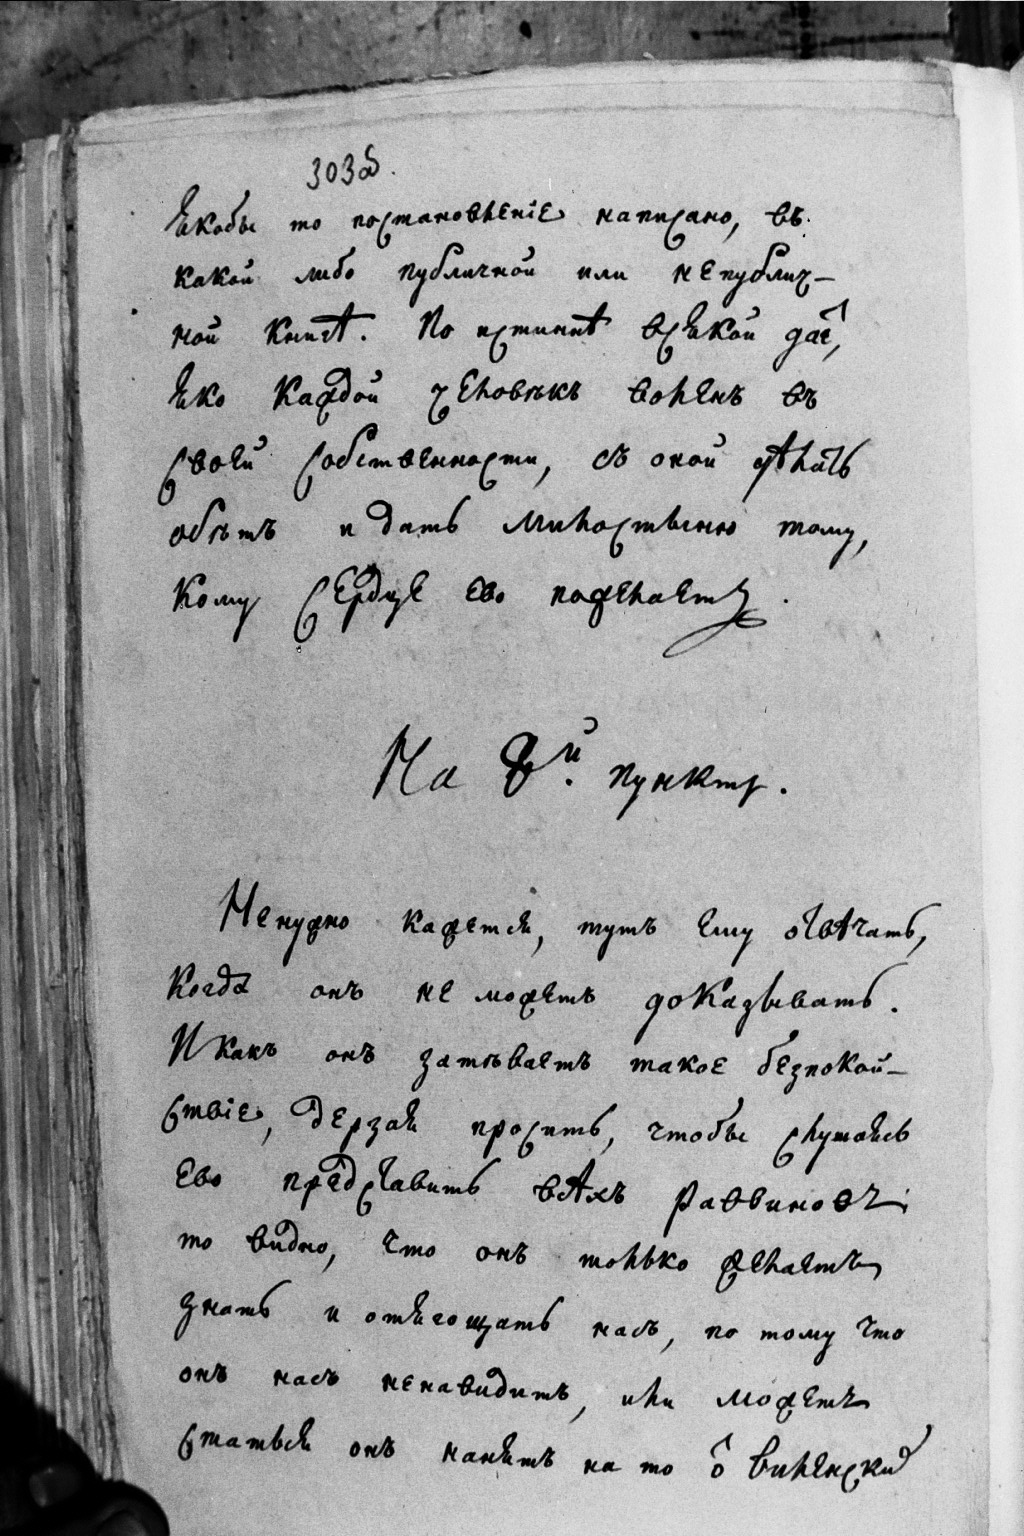 303об.
Якобы то постановленіе написано, въ
какой либо публичной или непублич-
ной книгѣ. По истиннѣ всякой даетъ,
яко каждой человѣкъ воленъ въ
своей собственности, съ оной дѣлать
обѣтъ и дать милостыню тому,
кому сердце ево пожелаетъ.
На 8й. пунктъ.
Ненужно кажется, тутъ ему отвѣчать,
когда онъ не можетъ доказывать.
И какъ онъ затѣваетъ такое безпокой-
ствіе, дерзая просить, чтобы слушаясь
ево представить всѣхъ раввиновъ;
то видно, что онъ только желаетъ
гнать и отягощать насъ, по тому что
онъ насъ ненавидитъ, или можетъ
статься онъ нанятъ на то о Виленски